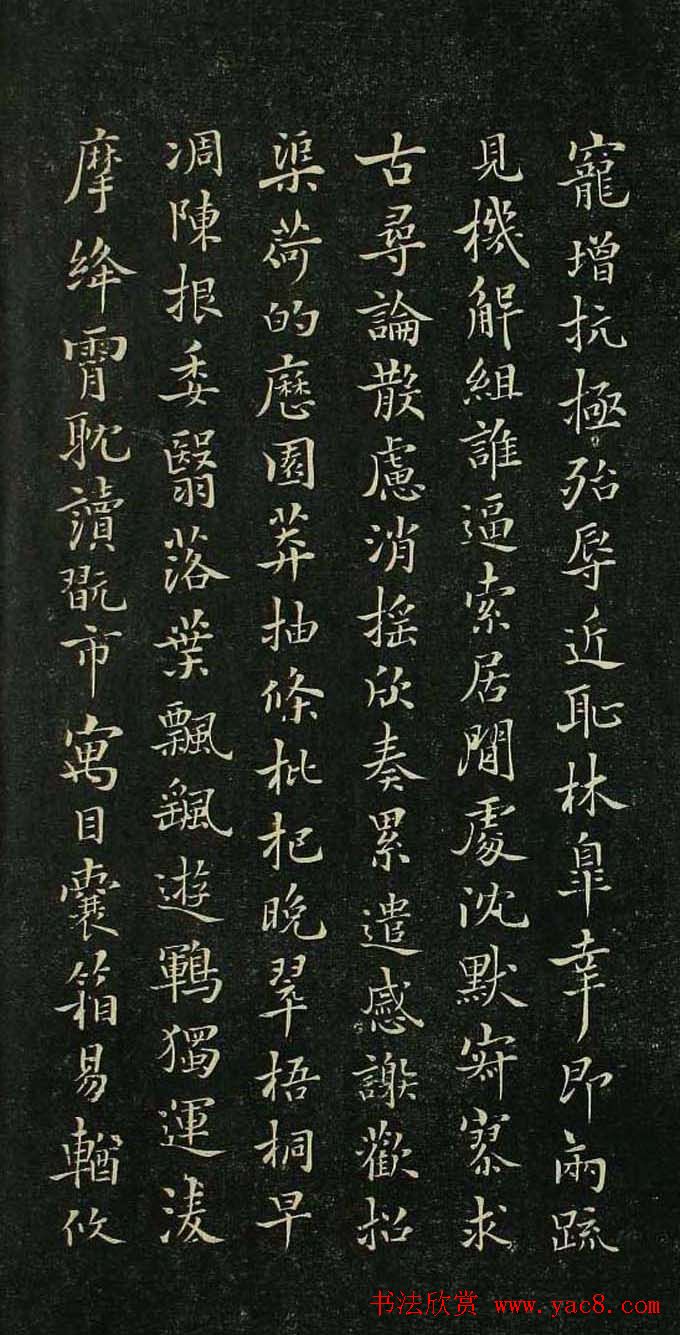 寵增抗極殆辱近恥林皐幸即兩疏
見機解組誰逼索居閒處沈默寂寥求
古尋論散慮消搖欣奏累遣感謝歡招
渠荷的歷園莽抽條枇杷晚翠梧桐早
凋陳根委翳落葉飄颻遊鵾獨運淩
摩絳霄耽讀翫市寓目囊箱易輶攸
书法欣赏 www.yac8.com